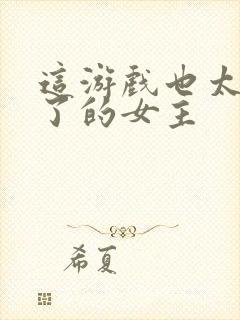 這游戲也太
了的女主
希夏